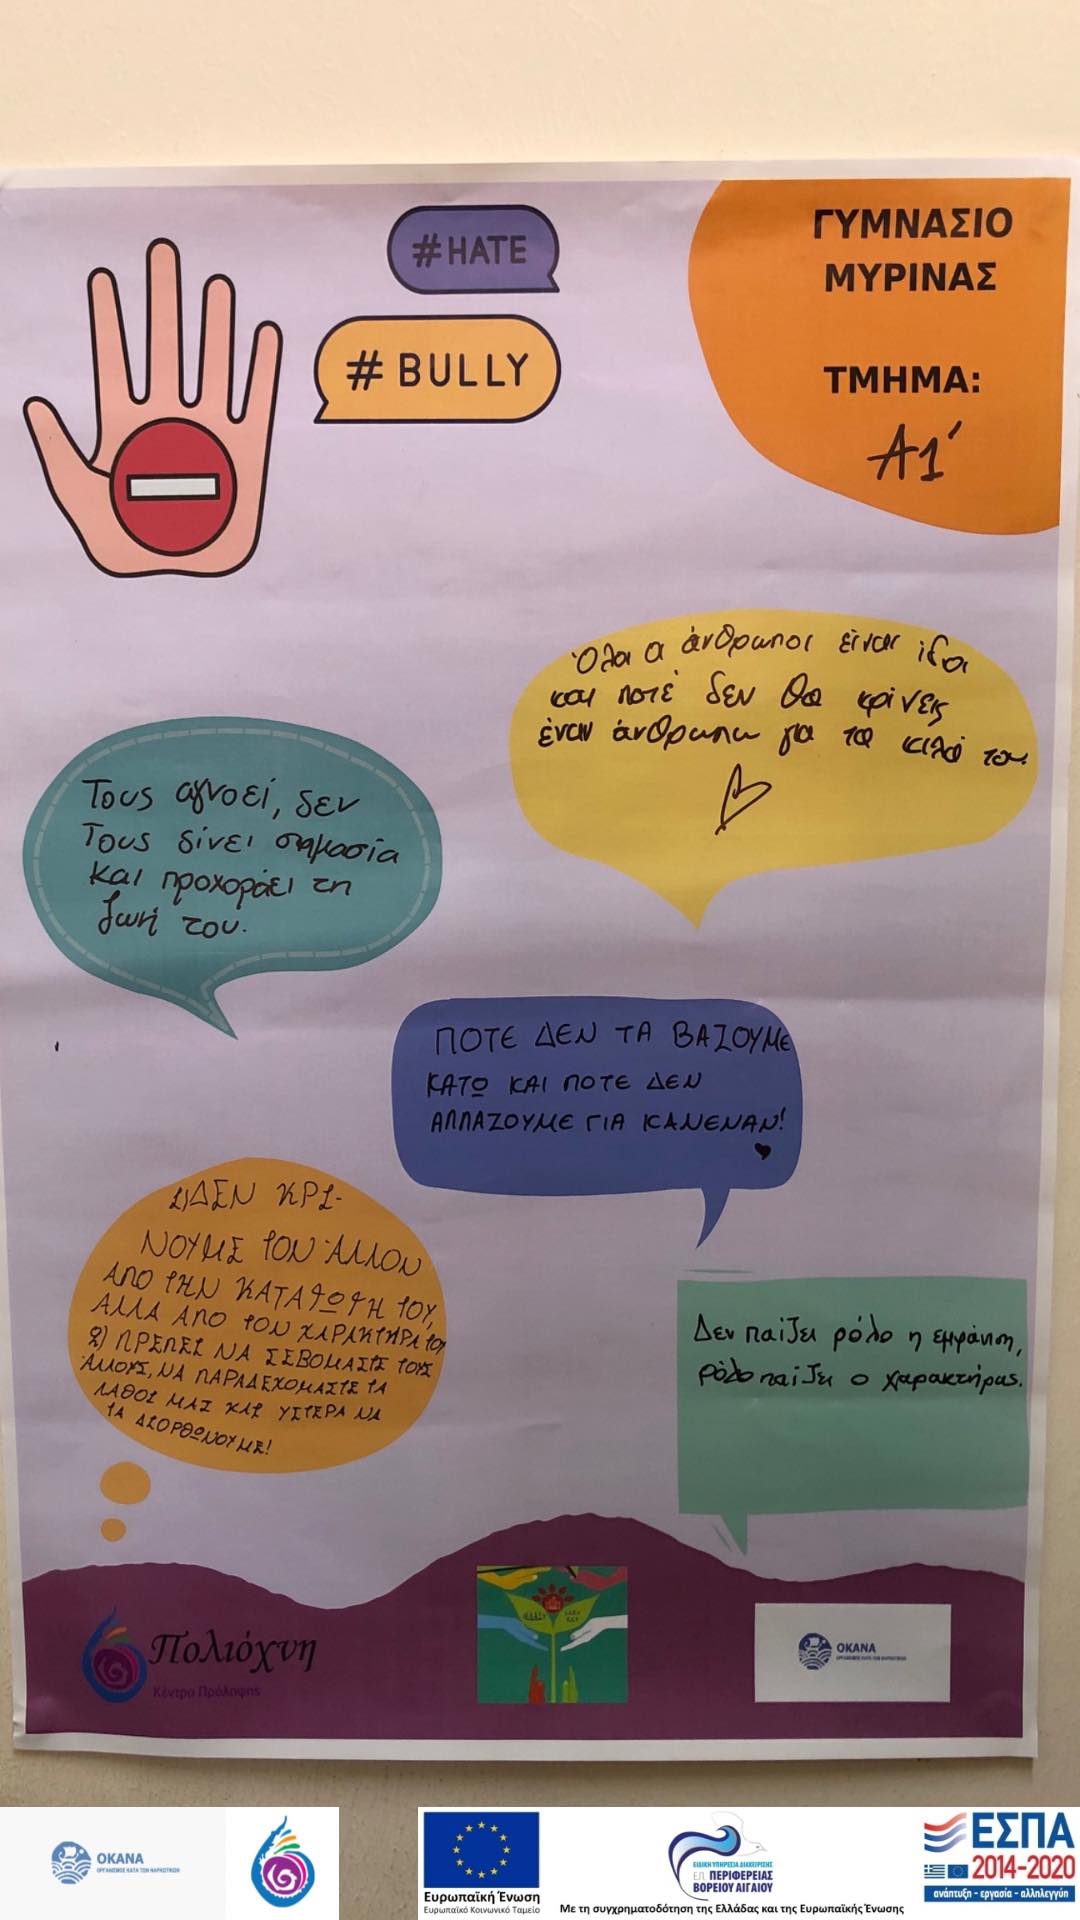 #HATE
# BULLY
ΓΥΜΝΑΣΙΟ
ΜΥΡΙΝΑΣ
ΤΜΗΜΑ:
Α1΄
Όλοι οι άνθρωποι είναι ίδιοι
και ποτέ δεν θα κρίνεις
έναν άνθρωπω για τα κιλά του
Τους αγνοεί, δεν
Τους δίνει σημασία
και προχοράει τη
ζωή του.
ΠΟΤΕ ΔΕΝ ΤΑ ΒΑΖΟΥΜΕ
ΚΑΤΩ ΚΑΙ ΠΟΤΕ ΔΕΝ
ΑΛΛΑΖΟΥΜΕ ΓΙΑ ΚΑΝΕΝΑΝ!
1)ΔΕΝ ΚΡΙ-
ΝΟΥΜΕ ΤΟΝ ΆΛΛΟΝ
ΑΠΟ ΤΗΝ ΚΑΤΑΓΩΓΗ ΤΟΥ,
ΑΛΛΑ ΑΠΟ ΤΟΝ ΧΑΡΑΚΤΗΡΑ ΤΟΥ
2) ΠΡΕΠΕΙ ΝΑ ΣΕΒΟΜΑΣΤΕ ΤΟΥΣ
ΆΛΛΟΥΣ, ΝΑ ΠΑΡΑΔΕΧΟΜΑΣΤΕ ΤΑ
ΛΑΘΟΙ ΜΑΣ ΚΑΙ ΥΣΤΕΡΑ ΝΑ
ΤΑ ΔΙΟΡΘΩΝΟΥΜΕ!
Δεν παίζει ρόλο η εμφάνιση,
ρόλο παίζει ο χαρακτήρας.
Πολιόχνη
Κέντρο Πρόληψης
ΟΚΑΝΑ
ΟΡΓΑΝΙΣΜΟΣ ΚΑΤΑ ΤΩΝ ΝΑΡΚΩΤΙΚΩΝ
ΟΚΑΝΑ
ΟΡΓΑΝΙΣΜΟΣ ΚΑΤΑ ΤΩΝ ΝΑΡΚΩΤΙΚΩΝ
Ευρωπαϊκή Ένωση
Ευρωπαϊκό Κοινωνικό Ταμείο
ΕΙΔΙΚΗ ΥΠΗΡΕΣΙΑ ΔΙΑΧΕΙΡΙΣΗΣ
Ε.Π. ΠΕΡΙΦΕΡΕΙΑΣ
ΒΟΡΕΙΟΥ ΑΙΓΑΙΟΥ
Με τη συγχρηματοδότηση της Ελλάδας και της Ευρωπαϊκής Ένωσης
ΕΣΠΑ
2014-2020
ανάπτυξη - εργασία - αλληλεγγύη